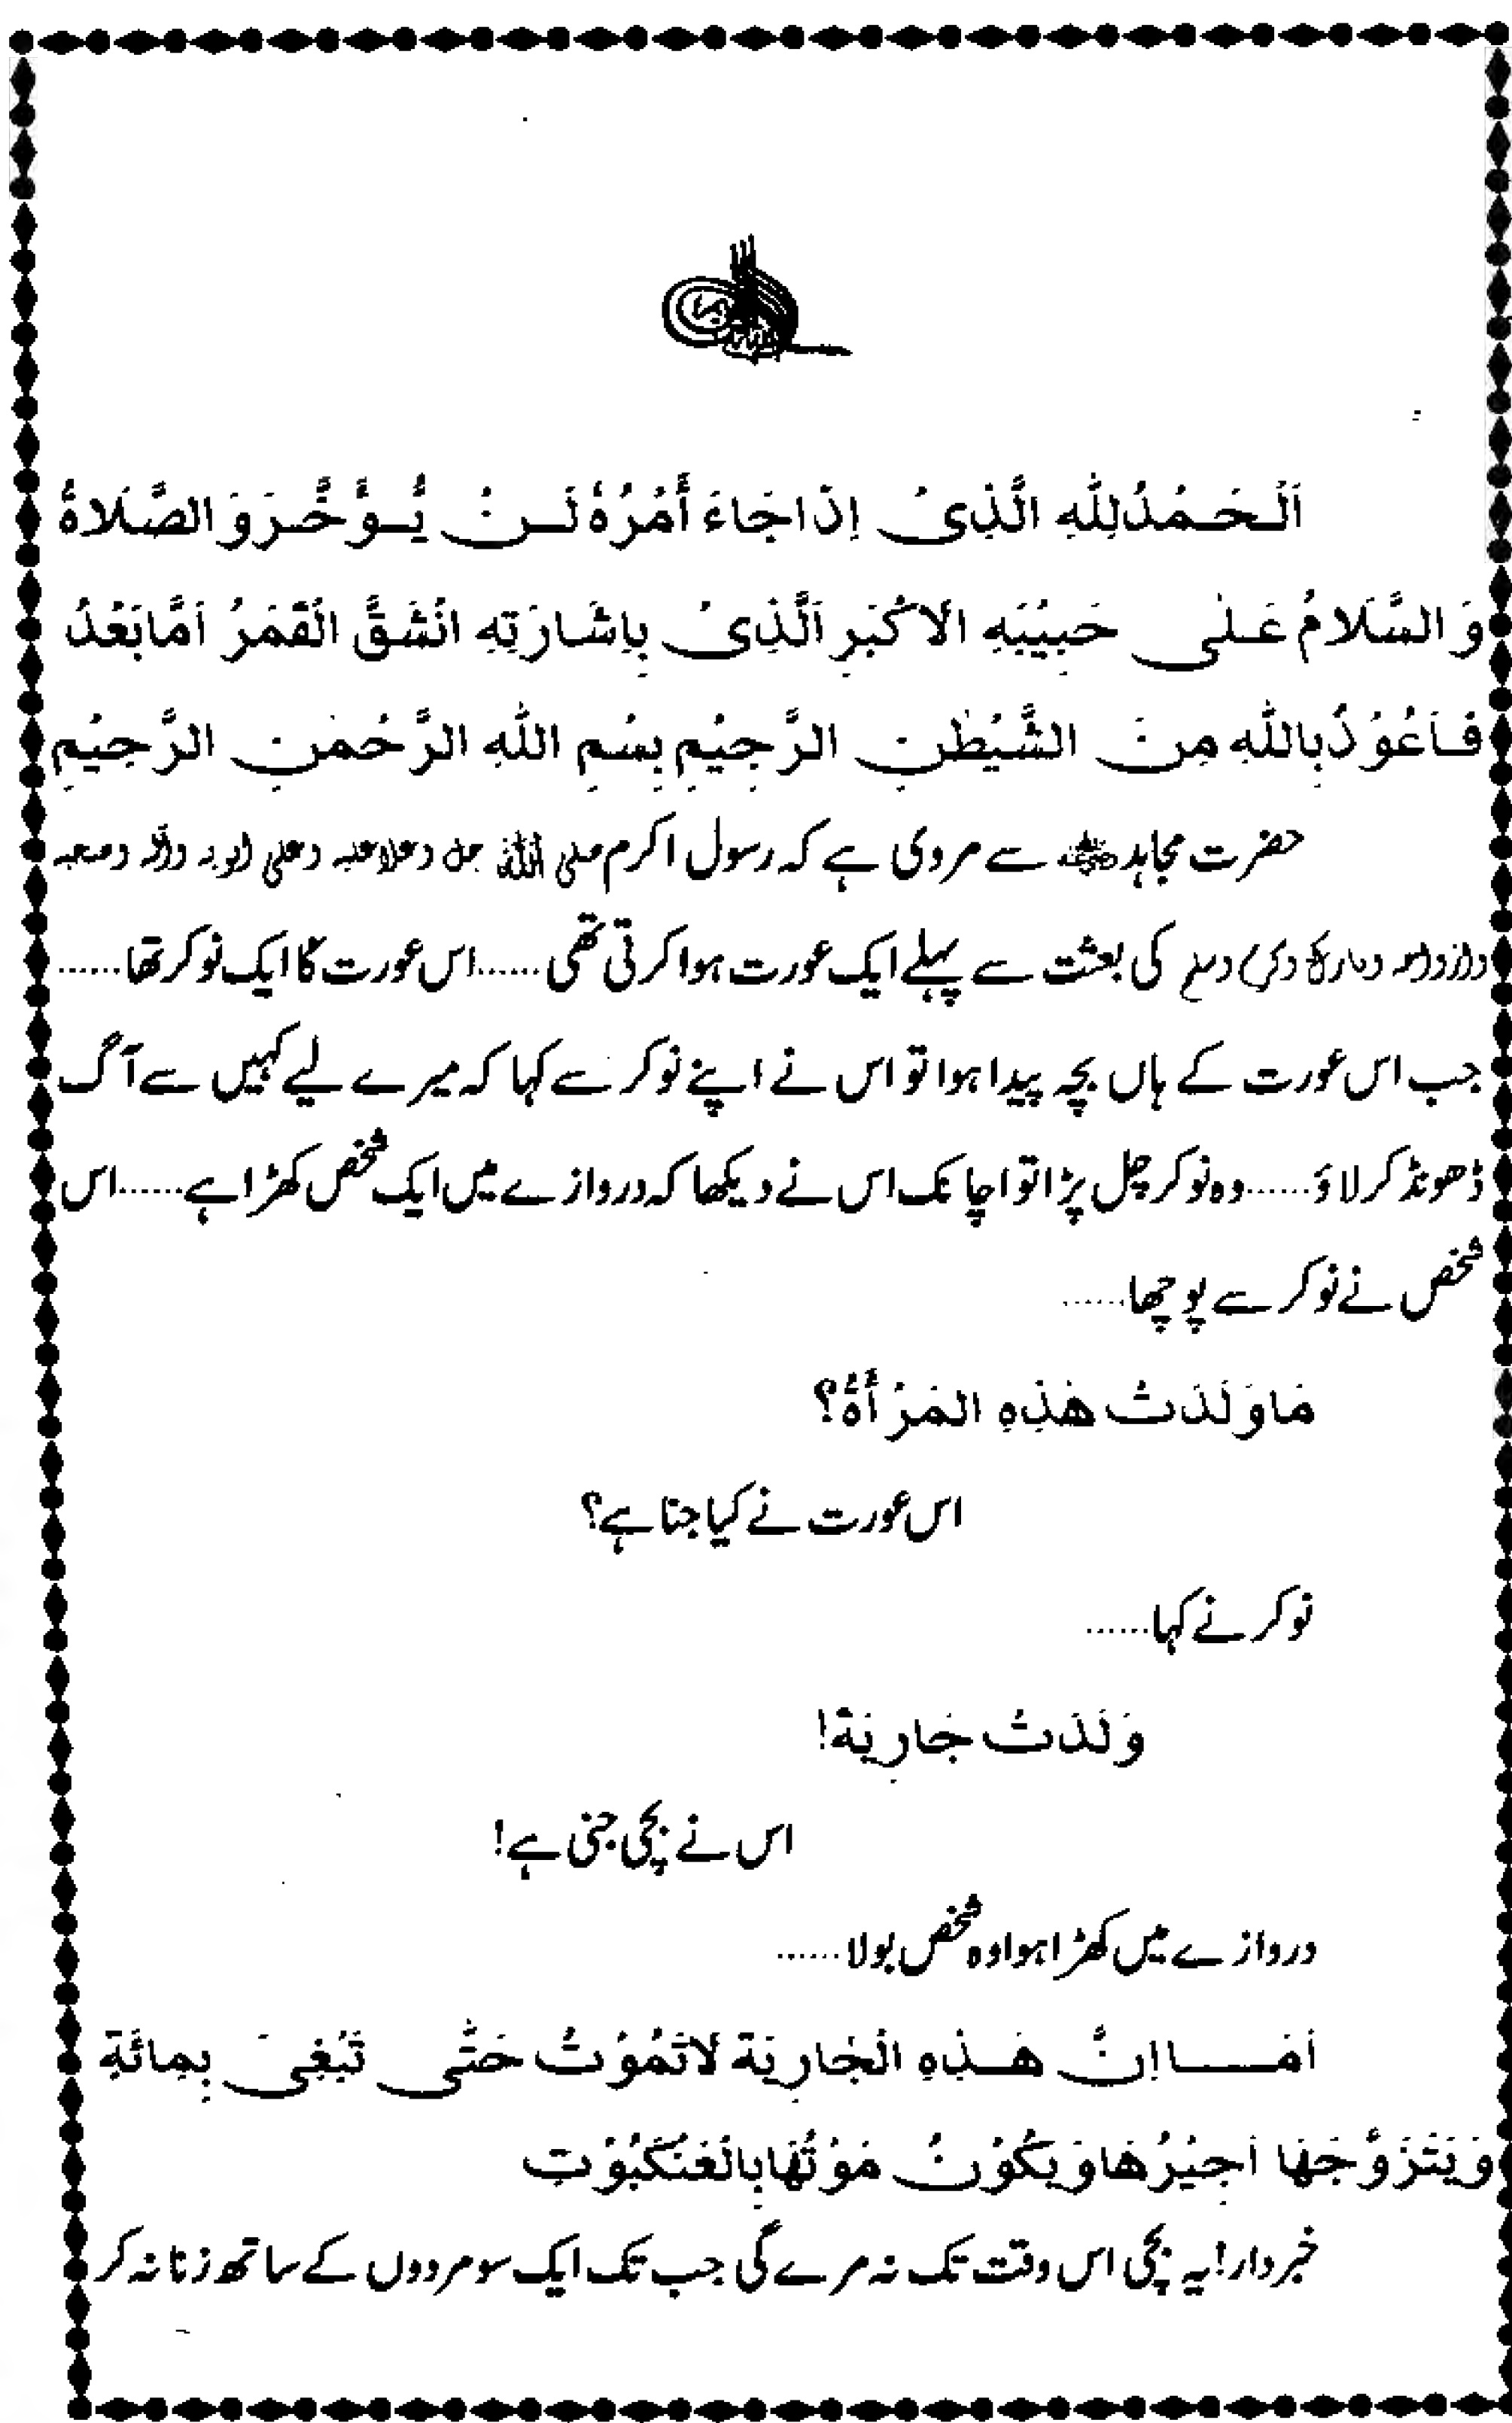 اَلْحَمْدُ لِلّٰهِ الَّذِیْ اِذَا جَاءَ أَمْرُهٗ لَنْ يُّؤَخَّرَ وَ الصَّلَاةُ
وَ السَّلَامُ عَلٰی حَبِيْبَهِ الْاَكْبَرِ اَلَّذِیْ بِاِشَارَتِهِ انْشَقَّ الْقَمَرُ اَمَّا بَعْدُ
فَاَعُوْذُ بِاللّٰهِ مِنَ الشَّيْطٰنِ الرَّجِيْمِ بِسْمِ اللّٰهِ الرَّحْمٰنِ الرَّحِيْمِ
حضرت مجاہد ﷛ سے مروی ہے کہ رسول اکرم صلی اللہ جل وعلا علیہ وعلی ابویہ وآلہ وصحبہ
وازواجہ وبارک وکرم وسلم کی بعثت سے پہلے ایک عورت ہوا کرتی تھی ...... اس عورت کا ایک نوکر تھا ......
جب اس عورت کے ہاں بچہ پیدا ہوا تو اس نے اپنے نوکر سے کہا کہ میرے لیے کہیں سے آگ
ڈھونڈ کر لاؤ ...... وہ نوکر چل پڑا تو اچانک اس نے دیکھا کہ دروازے میں ایک شخص کھڑا ہے ...... اس
شخص نے نوکر سے پوچھا ......
مَا وَلَدَتْ هٰذِهِ الْمَرْأَةُ؟
اس عورت نے کیا جنا ہے؟
نوکر نے کہا ......
وَلَدَتْ جَارِيَة!
اس نے بچی جنی ہے!
دروازے میں کھڑا ہوا وہ شخص بولا ......
اَمَا اِنَّ هٰذِهِ الْجَارِيَة لَا تَمُوْتُ حَتّٰی تَبْغِیَ بِمِائَةِ
وَ يَتَزَوَّجَهَا اَجِيْرُهَا وَ يَكُوْنُ مَوْتُهَا بِالْعَنْكَبُوْتِ
خبردار! یہ بچی اس وقت تک نہ مرے گی جب تک ایک سو مردوں کے ساتھ زنا نہ کر